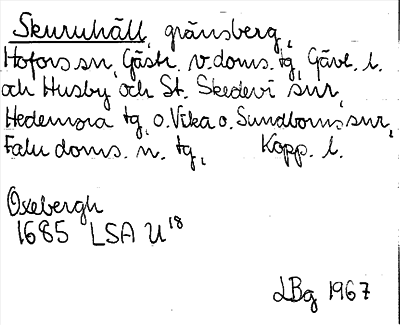 Skuruhäll, gränsberg,
Hofors sn, Gästr. v. doms. tg, Gävl. l.
och Husby och St. Skedevi snr,
Hedemora tg, o. Vika o. Sundborns snr,
Falu doms. n. tg, Kopp. l.
Oxebergh
1685 LSA U 18
LBg 1967